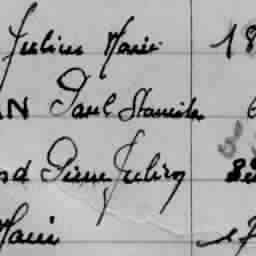 Julien Marie 18
AN Paul Stanislas 6
nd Pierre Julien 8
Marie 17